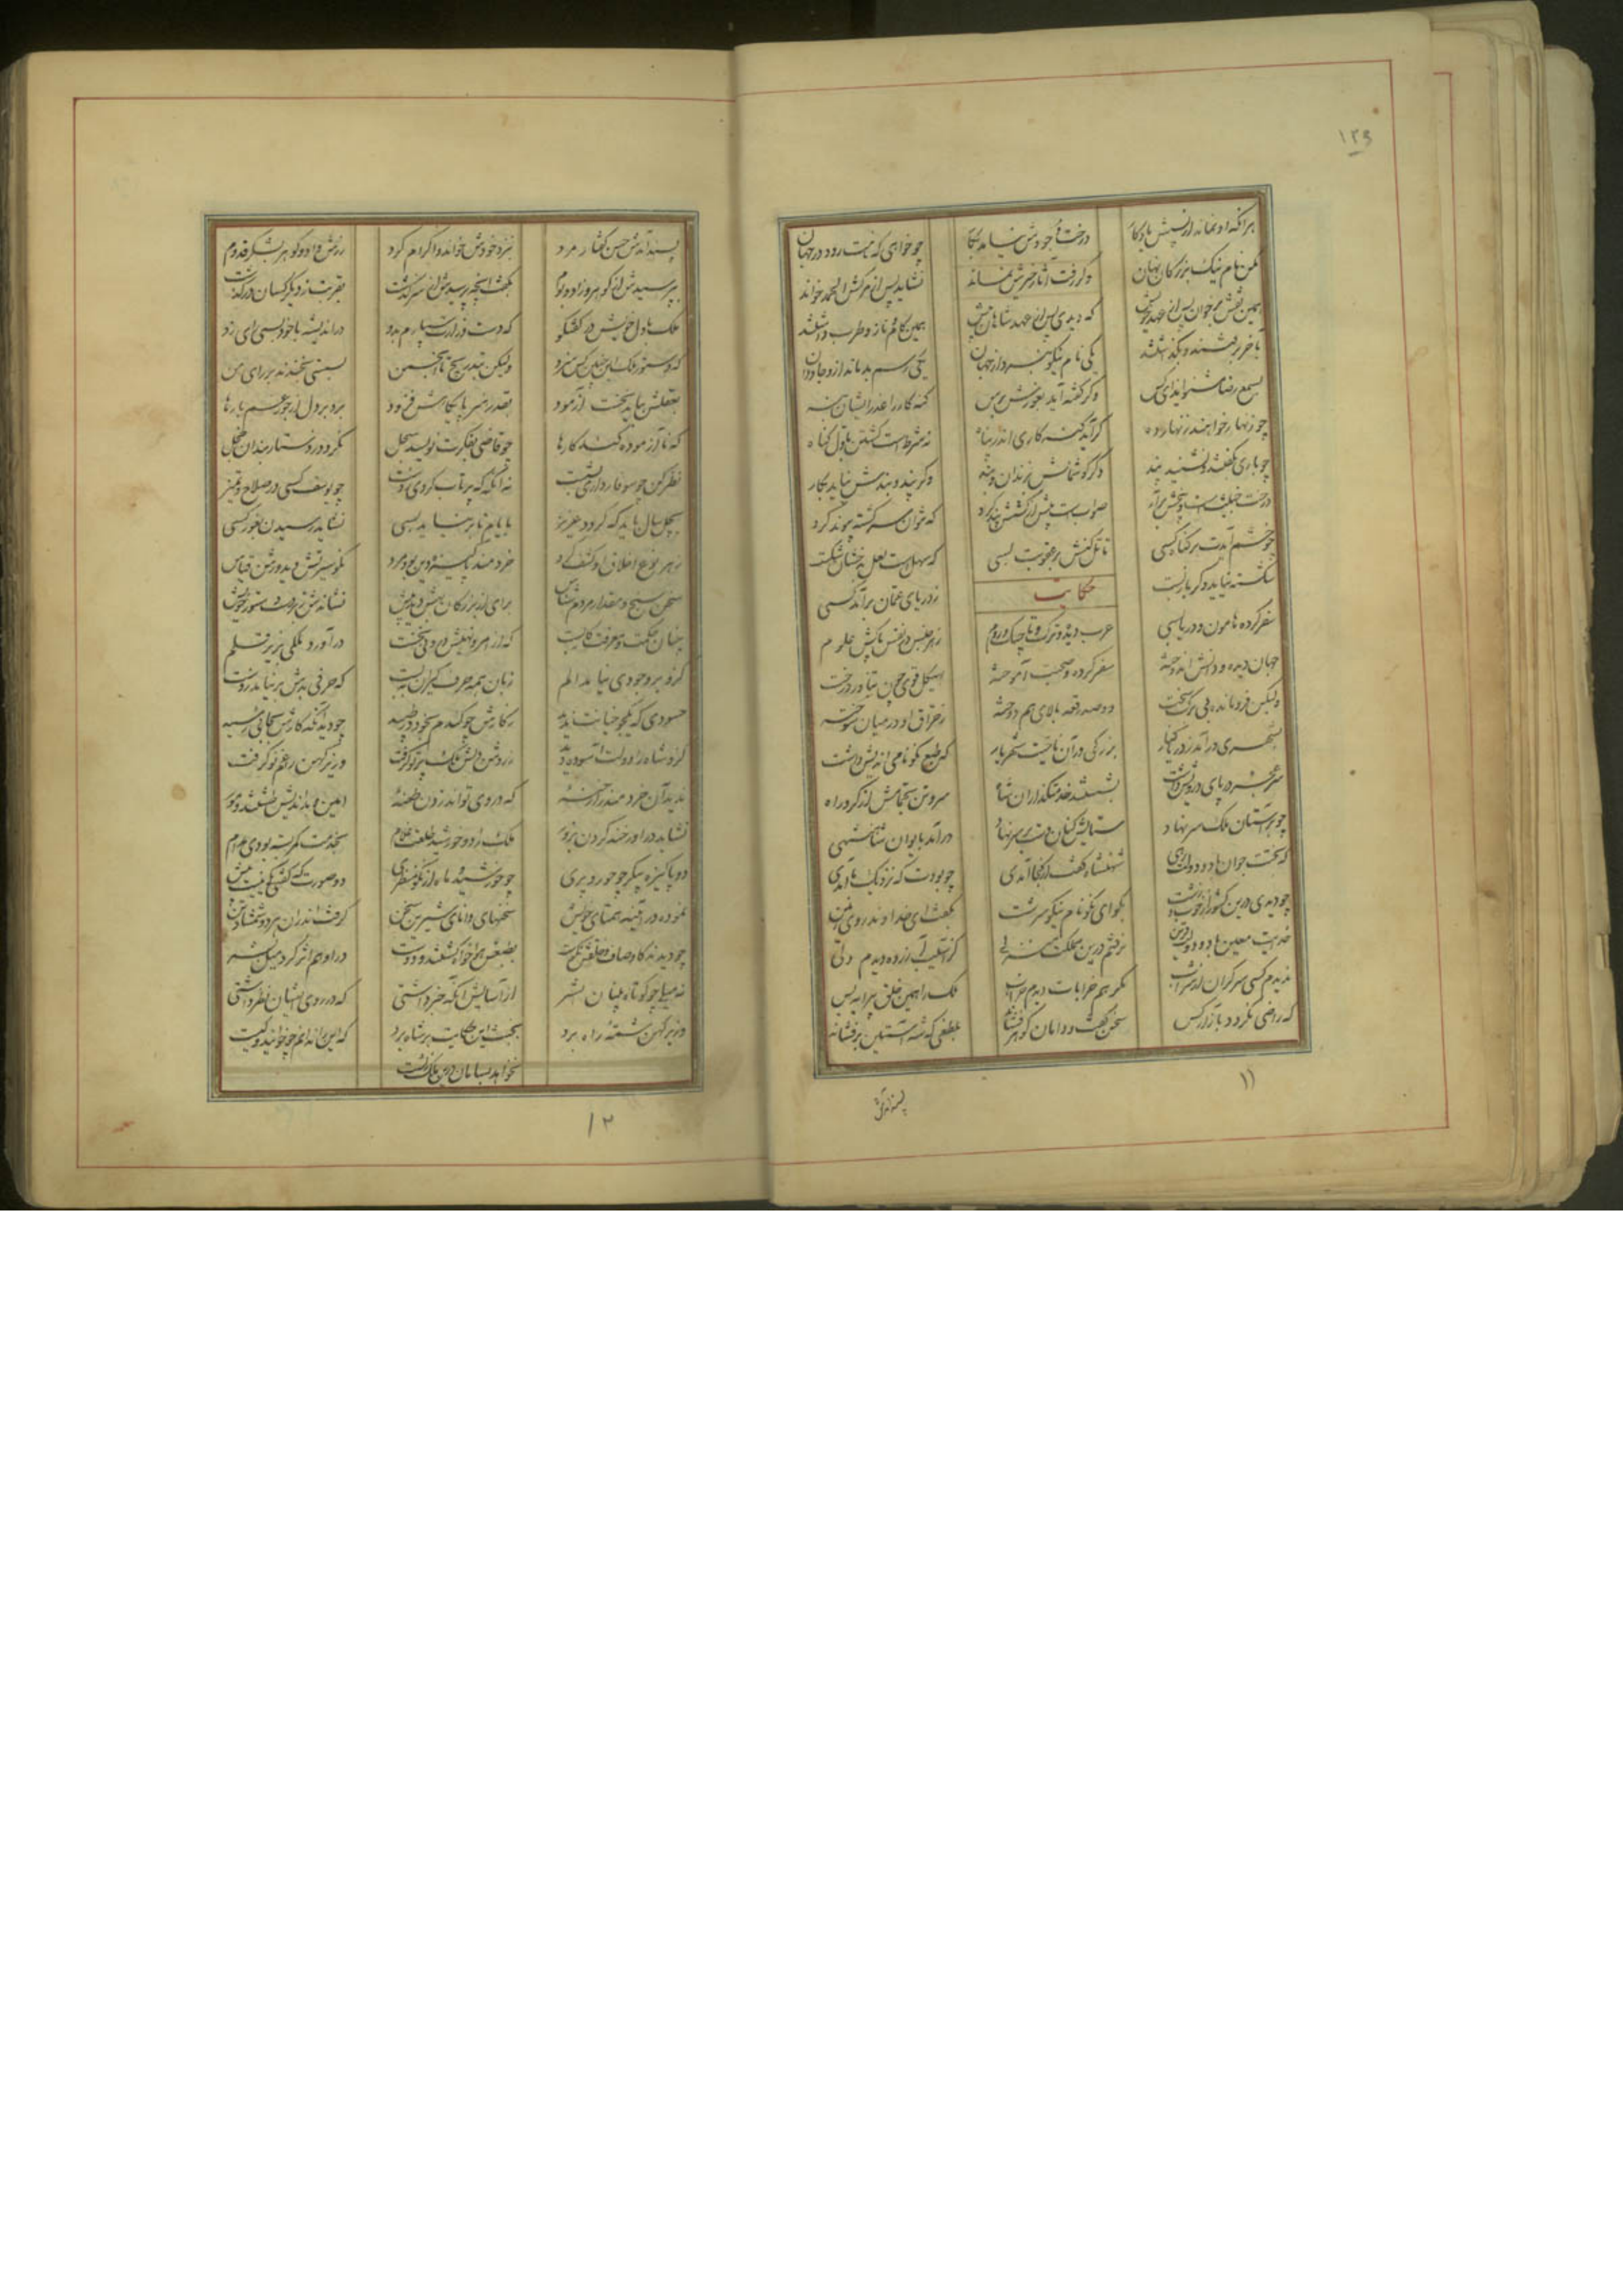 ۱۳۹
هر آنکو نماند از پسش یادگار درخت وجودش نیامد ببار چو خواهی که نامت رود در جهان
مکن نام نیک بزرگان نهان وگر رفت آثار خیرش نماند نشاید پس از مرگش الحمد خواند
همین نقش بر خوان پس از عهد خویش که دیدی پس از عهد شاهان پیش همین کام و ناز و طرب داشتند
بآخر برفتند و بگذاشتند یکی نام نیکو ببرد از جهان یکی رسم بد ماند ازو جاودان
بسمع رضا مشنو ایذای کس وگر گفته آید بغورش برس گنه کار را عذر نسیان بنه
چو زنهار خواهند زنهار ده گر آید گنه کاری اندر پناه نه شرط است کشتن باول گناه
چو باری بگفتند و نشنید پند دگر گوشمالش بزندان و بند وگر پند و بندش نیاید بکار
درخت خبیث است بیخش برآر صواب است پیش از کشتن بند کرد که نتوان سر کشته پیوند کرد
چو خشم آیدت بر گناه کسی تامل کنش در عقوبت بسی که سهلست لعل بدخشان شکست
شکسته نیاید دگر باره بست حکایت ز دریای عمان برآمد کسی
سفر کرده هامون و دریا بسی عرب دیده و ترک و تاجیک و روم ز هر جنس در نفس پاکش علوم
جهان دیده و دانش اندوخته سفر کرده و صحبت آموخته بهیکل قوی چون تناور درخت
ولیکن فرومانده بی برگ سخت دو صد رقعه بالای هم دوخته ز حراق او در میان سوخته
بشهری درآمد ز دریا کنار بزرگی در آن ناحیت شهریار که طبع نکونامی اندیش داشت
سر عجز در پای درویش داشت بشستند خدمتگذاران شاه سر و تن بحمامش از گرد راه
چو بر آستان ملک سر نهاد ستایش کنان دست بر سر نهاد درآمد بایوان شاهنشهی
که بختت جوان باد و دولت رهی شهنشاه گفت از کجا آمدی چه بودت که نزدیک ما آمدی
چه دیدی درین کشور از خوب و زشت بگو ای نکونام نیکو سرشت بگفت ای خداوند روی زمین
خدایت معین باد و دولت قرین نرفتم درین مملکت منزلی کز آسیب آزرده دیدم دلی
ندیدم کسی سرگران از شراب مگر هم خرابات دیدم خراب ملک را همین خلق پیرایه بس
که راضی نگردد بآزار کس سخن گفت و دامان گوهر فشاند بلطفی که شه آستین برفشاند
۱۱
پسند آمدش
پسند آمدش حسن گفتار مرد بنزد خودش خواند و اکرام کرد زرش داد و گوهر بشکر قدوم
بپرسیدش از گوهر و زاد و بوم بگفت آنچه پرسیدش از سرگذشت بقربت ز دیگر کسان درگذشت
ملک با دل خویش در گفتگو که دست وزارت سپارم بدو در اندیشه با خود بسی رای زد
که دستور ملک این چنین کس سزد ولیکن بتدریج تا انجمن بسستی نخندند بر رای من
بعقلش بباید نخست آزمود بقدر هنر پایگاهش فزود برد بر دل از جور غم بارها
که ناآزموده کند کارها چو قاضی بفکرت نویسد سجل نگردد ز دستار بندان خجل
نظر کن چو سوفار داری بشست نه آنگه که پرتاب کردی ز دست چو یوسف کسی در صلاح و تمیز
بچل سال باید که گردد عزیز بایام تا بر نیاید بسی نشاید رسیدن بغور کسی
ز هر نوع اخلاق او کشف کرد خردمند و پاکیزه دین بود مرد نکو سیرتش دید و روشن قیاس
سخن سنج و مقدار مردم شناس برای از بزرگان بهش دید و بیش نشاندش زبردست دستور خویش
چنان حکمت و معرفت کار بست که از امر و نهیش درونی نخست درآورد ملکی بزیر قلم
کزو بر وجودی نیامد الم زبان همه حرف گیران ببست که حرفی بدش برنیامد ز دست
حسودی که یکجو خیانت ندید بکارش چو گندم بخود در طپید چو دید آنکه کارش بجایی رسید
کزو شاه را دولت آسوده دید ز روشن دلش ملک پرتو گرفت وزیر کهن را غم نو گرفت
ندید آن خردمند را رخنه که در وی تواند زدن طعنه امین و بداندیش طشتند و مور
نشاید در او رخنه کردن بزور ملک را دو خورشید طلعت غلام بخدمت کمر بسته بودی مدام
دو پاکیزه پیکر چو حور و پری چو خورشید و ماه از نکو منظری دو صورت که گفتی یکی نیست بیش
نموده در آیینه همتای خویش سخنهای دانای شیرین سخن گرفت اندر آن هر دو شمشاد بن
چو دیدند کاوصاف و خلقش نکوست بطبعش هواخواه گشتند و دوست در او هم اثر کرد میل بشر
نه میلی چو کوتاه بینان بشر از آسایش آنگه خبر داشتی که در روی ایشان نظر داشتی
وزیر کهن شمه راه برد بخبث این حکایت بر شاه برد که این را ندانم چه خوانند و کیست
نخواهد بسامان درین ملک زیست
۱۲